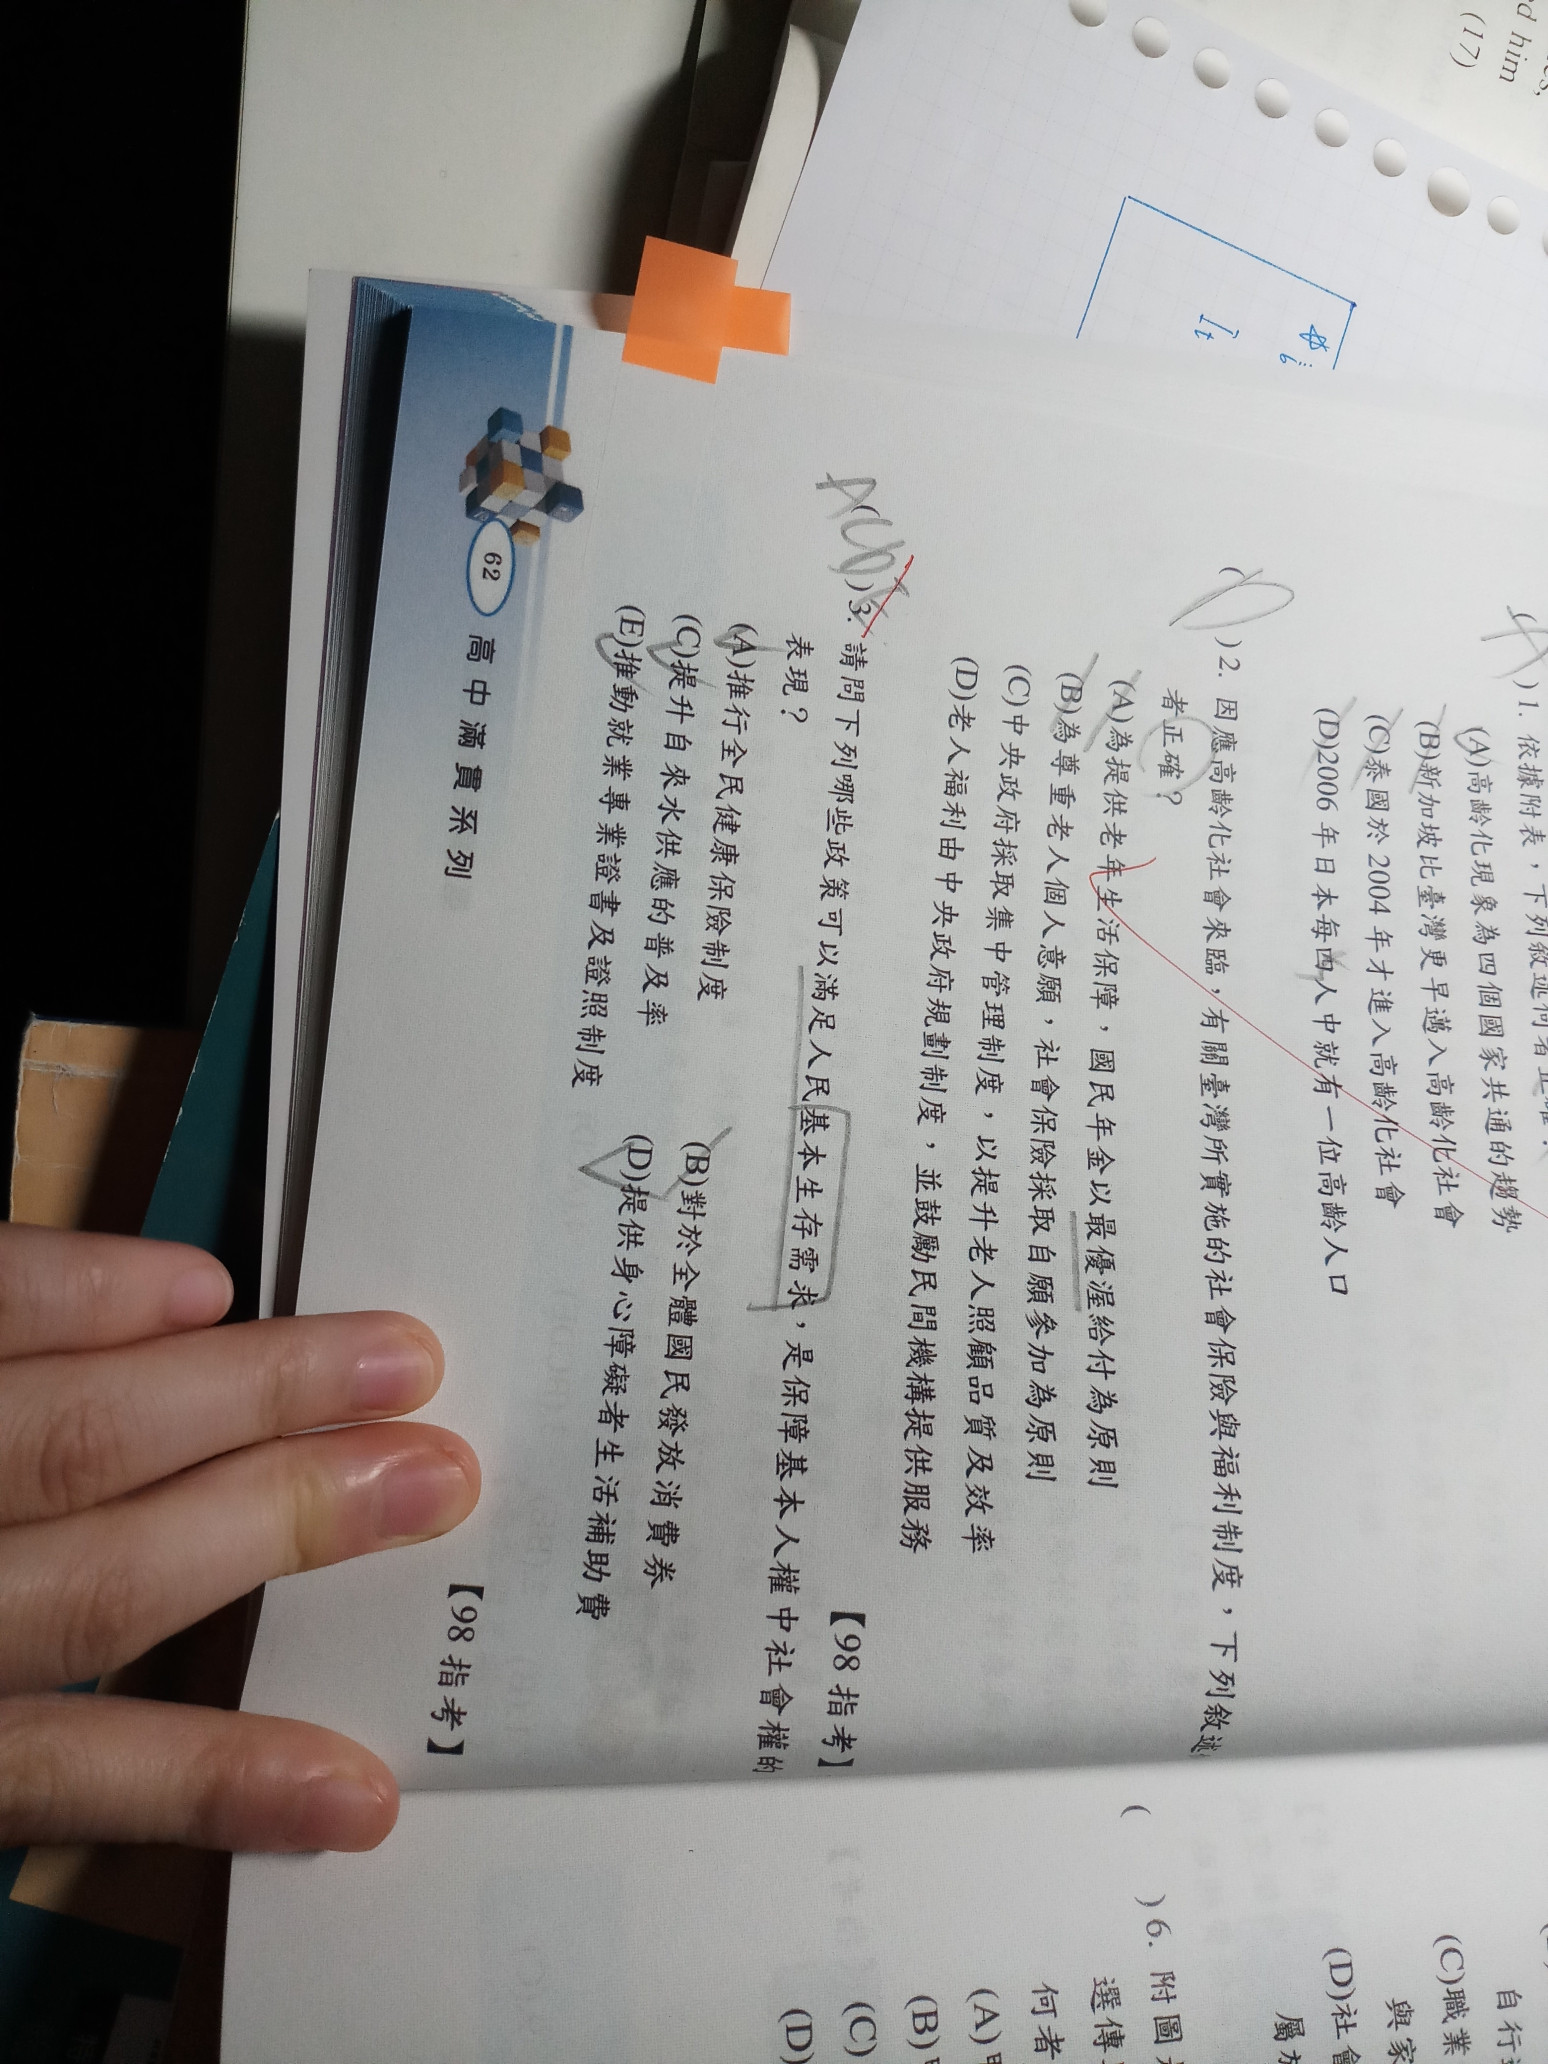 d him
(17)
)1. 依據附表，下列敘述何者正確
(A)高齡化現象為四個國家共通的趨勢
(B)新加坡比臺灣更早邁入高齡化社會
(C)泰國於2004年才進入高齡化社會
(D)2006年日本每四人中就有一位高齡人口
(D)2. 因應高齡化社會來臨，有關臺灣所實施的社會保險與福利制度，下列敘述
者正確？
(A)為提供老年生活保障，國民年金以最優渥給付為原則
(B)為尊重老人個人意願，社會保險採取自願參加為原則
(C)中央政府採取集中管理制度，以提升老人照顧品質及效率
(D)老人福利由中央政府規劃制度，並鼓勵民間機構提供服務
【98指考】
)3. 請問下列哪些政策可以滿足人民基本生存需求，是保障基本人權中社會權的
表現？
(A)推行全民健康保險制度 (B)對於全體國民發放消費券
(C)提升自來水供應的普及率 (D)提供身心障礙者生活補助費
(E)推動就業專業證書及證照制度
【98指考】
62 高中滿貫系列
自行
(C)職業
與家
(D)社會
屬於
( )6. 附圖
選傳
何者
(A)
(B)
(C)
(D)